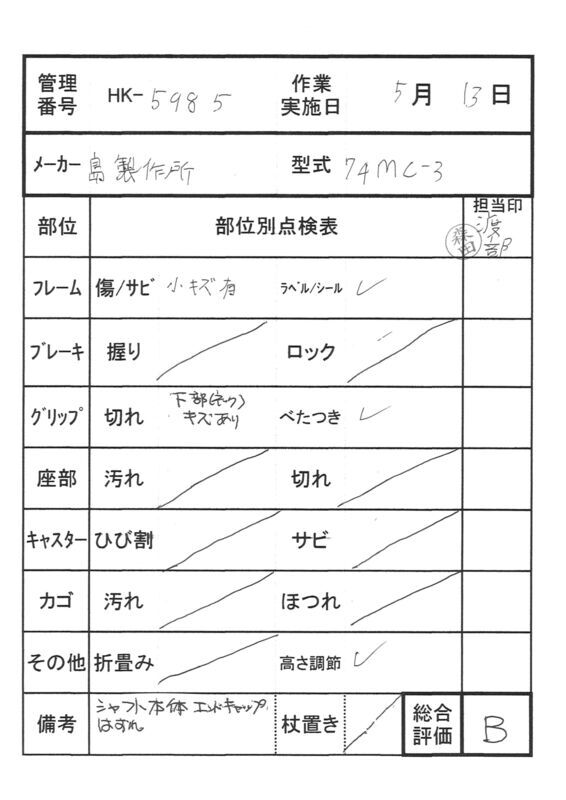 管理番号 HK-5985 作業実施日 5月 13日
メーカー 島製作所 型式 74MC-3
部位 部位別点検表 担当印
森田 渡部
フレーム 傷/サビ 小キズ有 ラベル/シール ✓
ブレーキ 握り ロック
グリップ 切れ 下部(ネック)キズあり べたつき ✓
座部 汚れ 切れ
キャスター ひび割 サビ
カゴ 汚れ ほつれ
その他 折畳み 高さ調節 ✓
備考 シャフト本体 エンドキャップ 杖置き 総合評価 B
はずれ